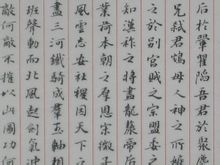 后於翬翟陷吾君於聚
兄弒君鴆母人神之所
之於別宮賊之宗盟委
知漢祚之將盡龍漦帝
業荷本朝之厚恩
風雲志安社稷因天下
盡三河鐵騎成群玉軸相
班聲動而北風起劍氣沖
敵何敵不摧以此圖功何